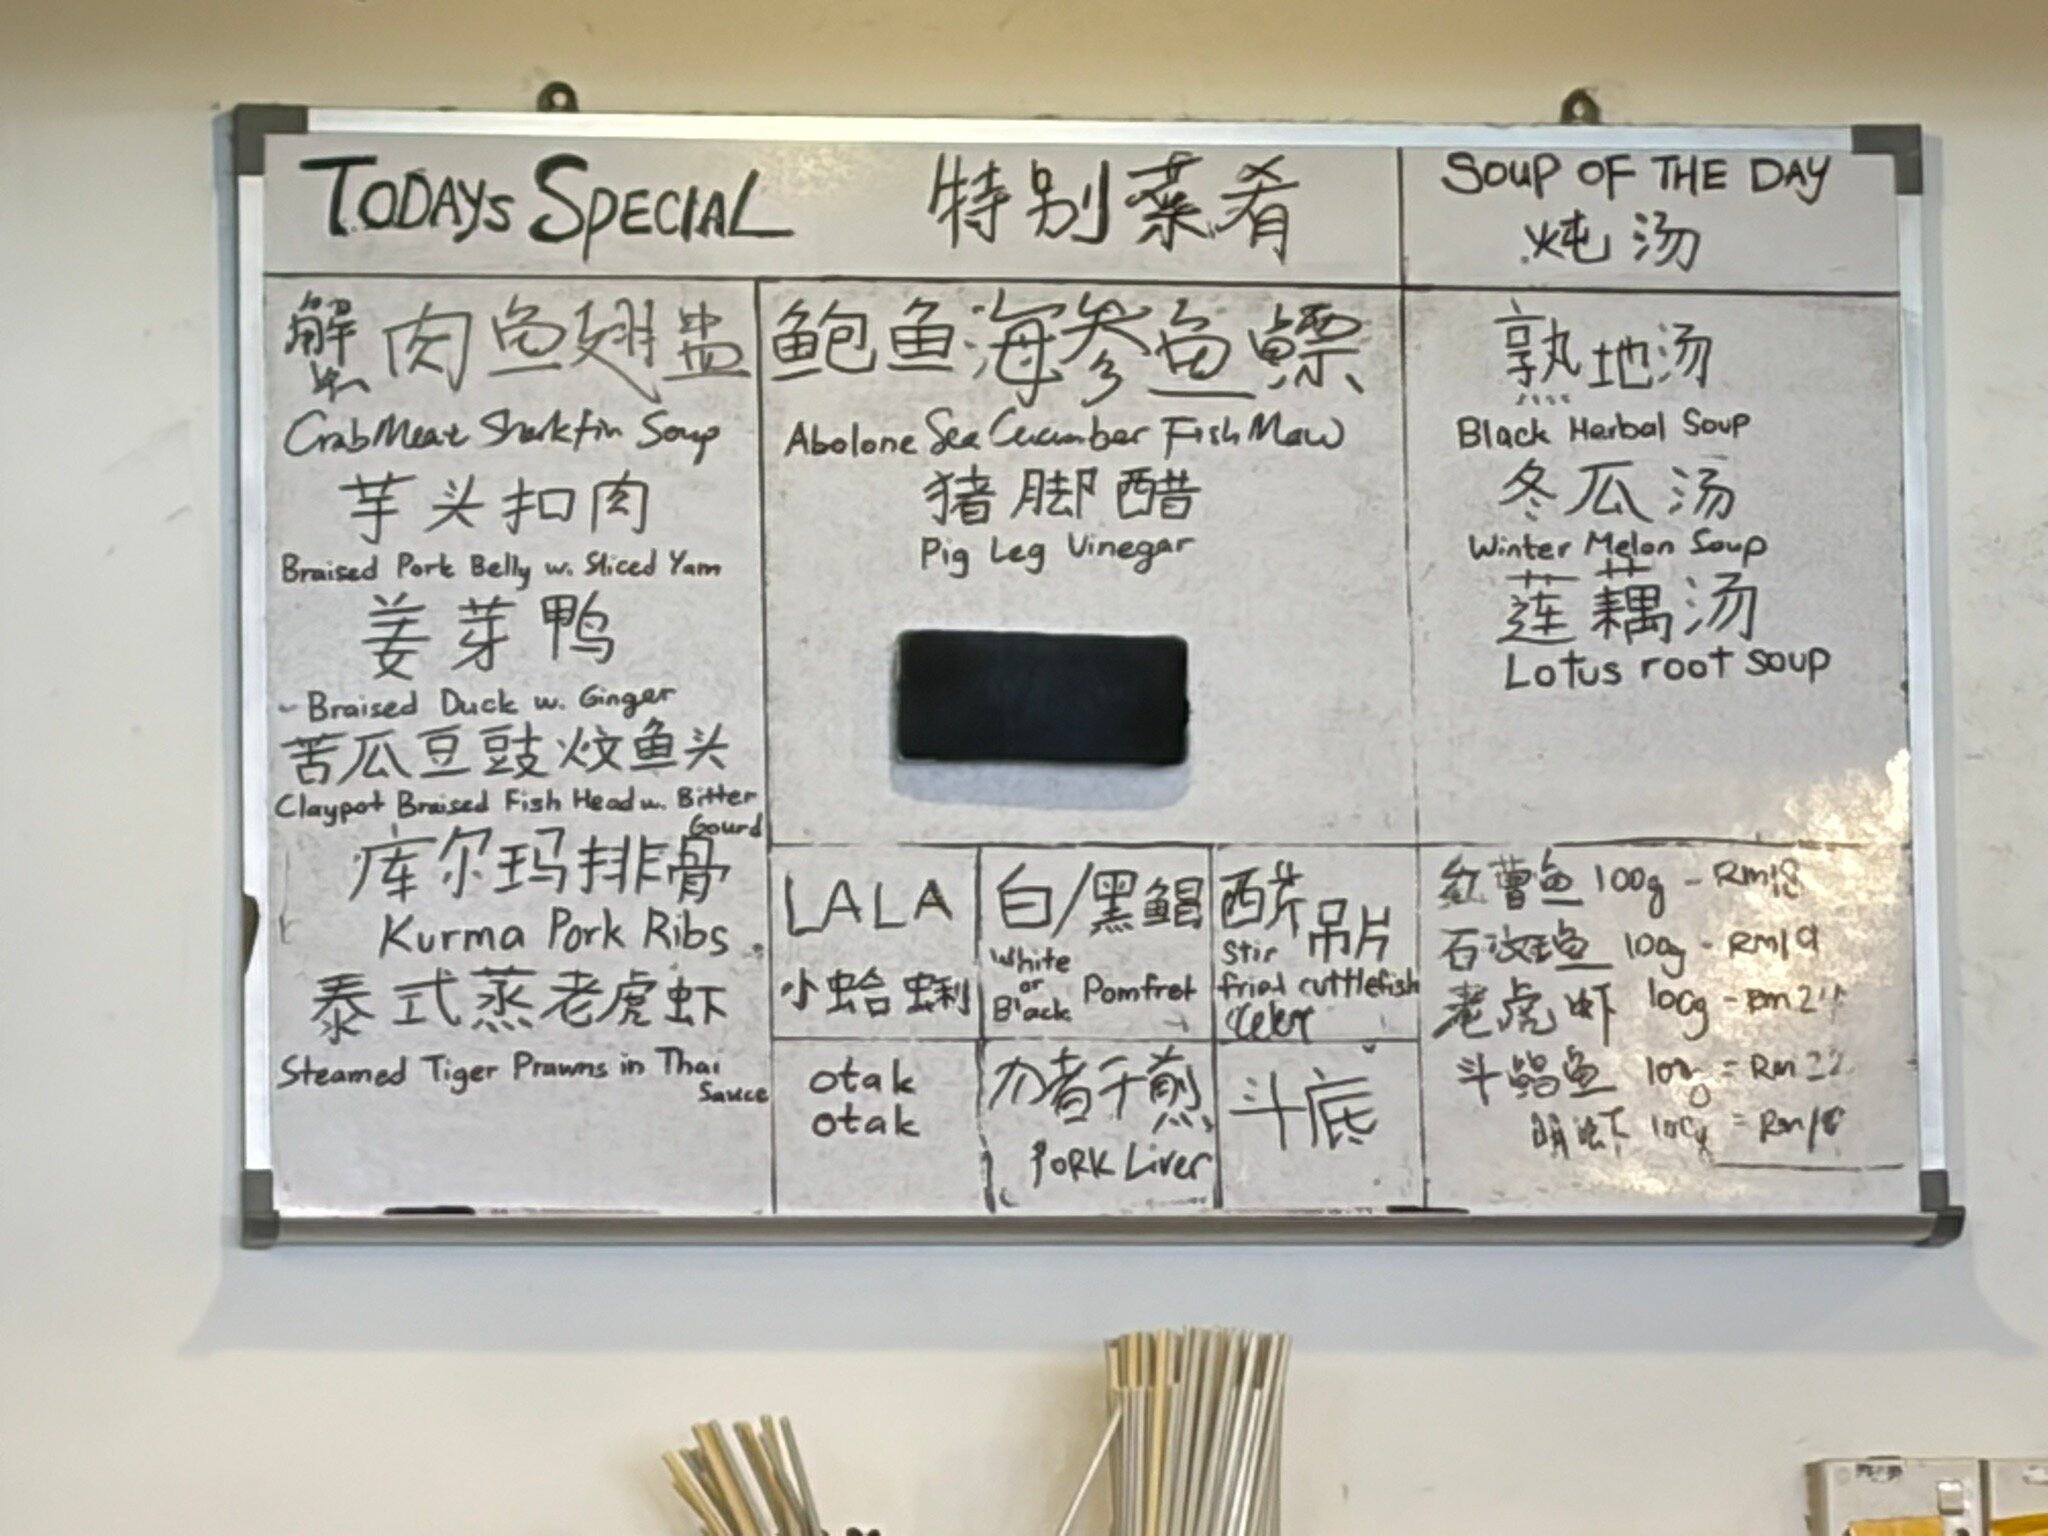 TODAYS SPECIAL 特别菜肴
蟹肉鱼翅盅
Crab Meat Sharkfin Soup
芋头扣肉
Braised Pork Belly w. Sliced Yam
姜芽鸭
Braised Duck w. Ginger
苦瓜豆豉炆鱼头
Claypot Braised Fish Head w. Bitter
Gourd
库尔玛排骨
Kurma Pork Ribs
泰式蒸老虎虾
Steamed Tiger Prawns in Thai
Sauce
鲍鱼海参鱼鳔
Abolone Sea Cucumber Fish Maw
猪脚醋
Pig Leg Vinegar
LALA
小蛤蜊
白/黑鲳
White
or
Black Pomfret
西芹吊片
Stir
fried cuttlefish
otak
otak
煎
PORK Liver
斗底
SOUP OF THE DAY
炖汤
熟地汤
Black Herbal Soup
冬瓜汤
Winter Melon Soup
莲藕汤
Lotus root soup
鱼 100g - Rm18
石 鱼 100g - Rm19
老虎虾 100g -
斗鲳鱼
虾